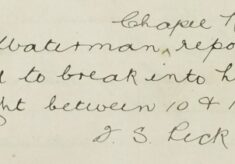 Chapel
Waterman, repo
to break into h
ght between 10 & 1
J. S. Peck